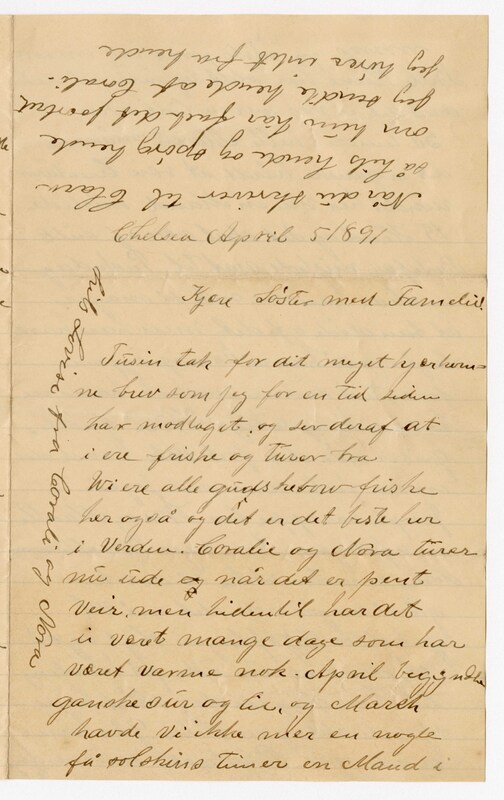 Chelsea April 5/891
Kjære Søster med Familie.
Tusin tak for dit meget kjerkom=
ne brev som jeg for en tid siden
har modtaget, og ser deraf at
i ere friske og turer bra
Wi ere alle guskebow friske
her også og det er det beste her
i Verden. Coralie og Nora turer
nu ude og når det er pent
veir, men hidentil har det
ei været mange dage som har
været varme nok. April begyndte
ganske sur og lei, og March
havde vi ikke mer en nogle
få solskins timer en Maud i
hils Lovise fra Corali og Nora
Når du skriver til Clara
så hils hende og spørg hende
om hun har fået det
jeg sendte hende af Corali.
jeg hører intet fra hende